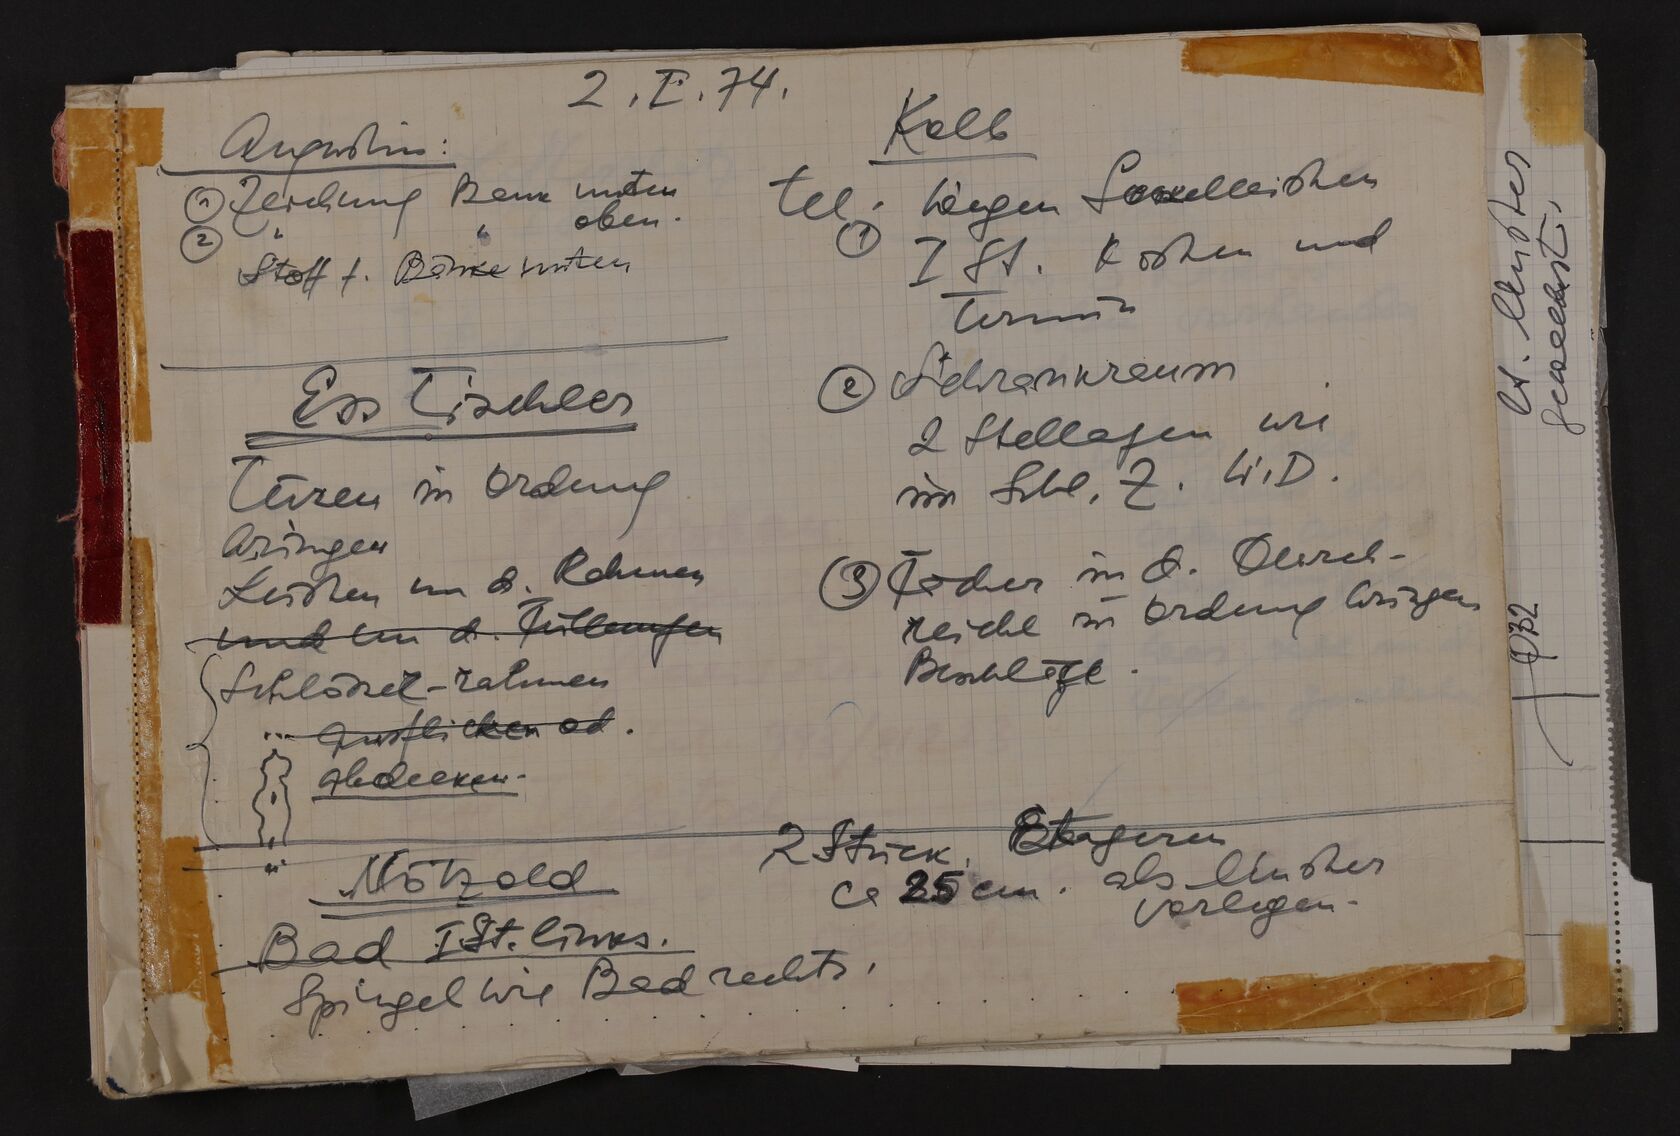 2. I. 74.
Augustin:
① Zeichnung Bank unten
② " " oben.
Stoff f. Bänke unten
Ess Tischler
Türen in Ordung
bringen
Leisten um d. Rahmen
und um d. Füllungen
Schlösser-rahmen
ausflicken od.
abdecken.
Nötzold
Bad I St. links.
Spiegel wie Bad rechts.
Kalb
tel. wegen Sockelleisten
① I St. Kosten und
Termin
② Schrankraum
2 Stellagen wie
im Schl. Z. W.D.
③ Fächer in d. Durch-
reiche in Ordung bringen
Beschläge.
2 Stück. Etageren
ca 25 cm. als Muster
vorlegen.
lt. Muster